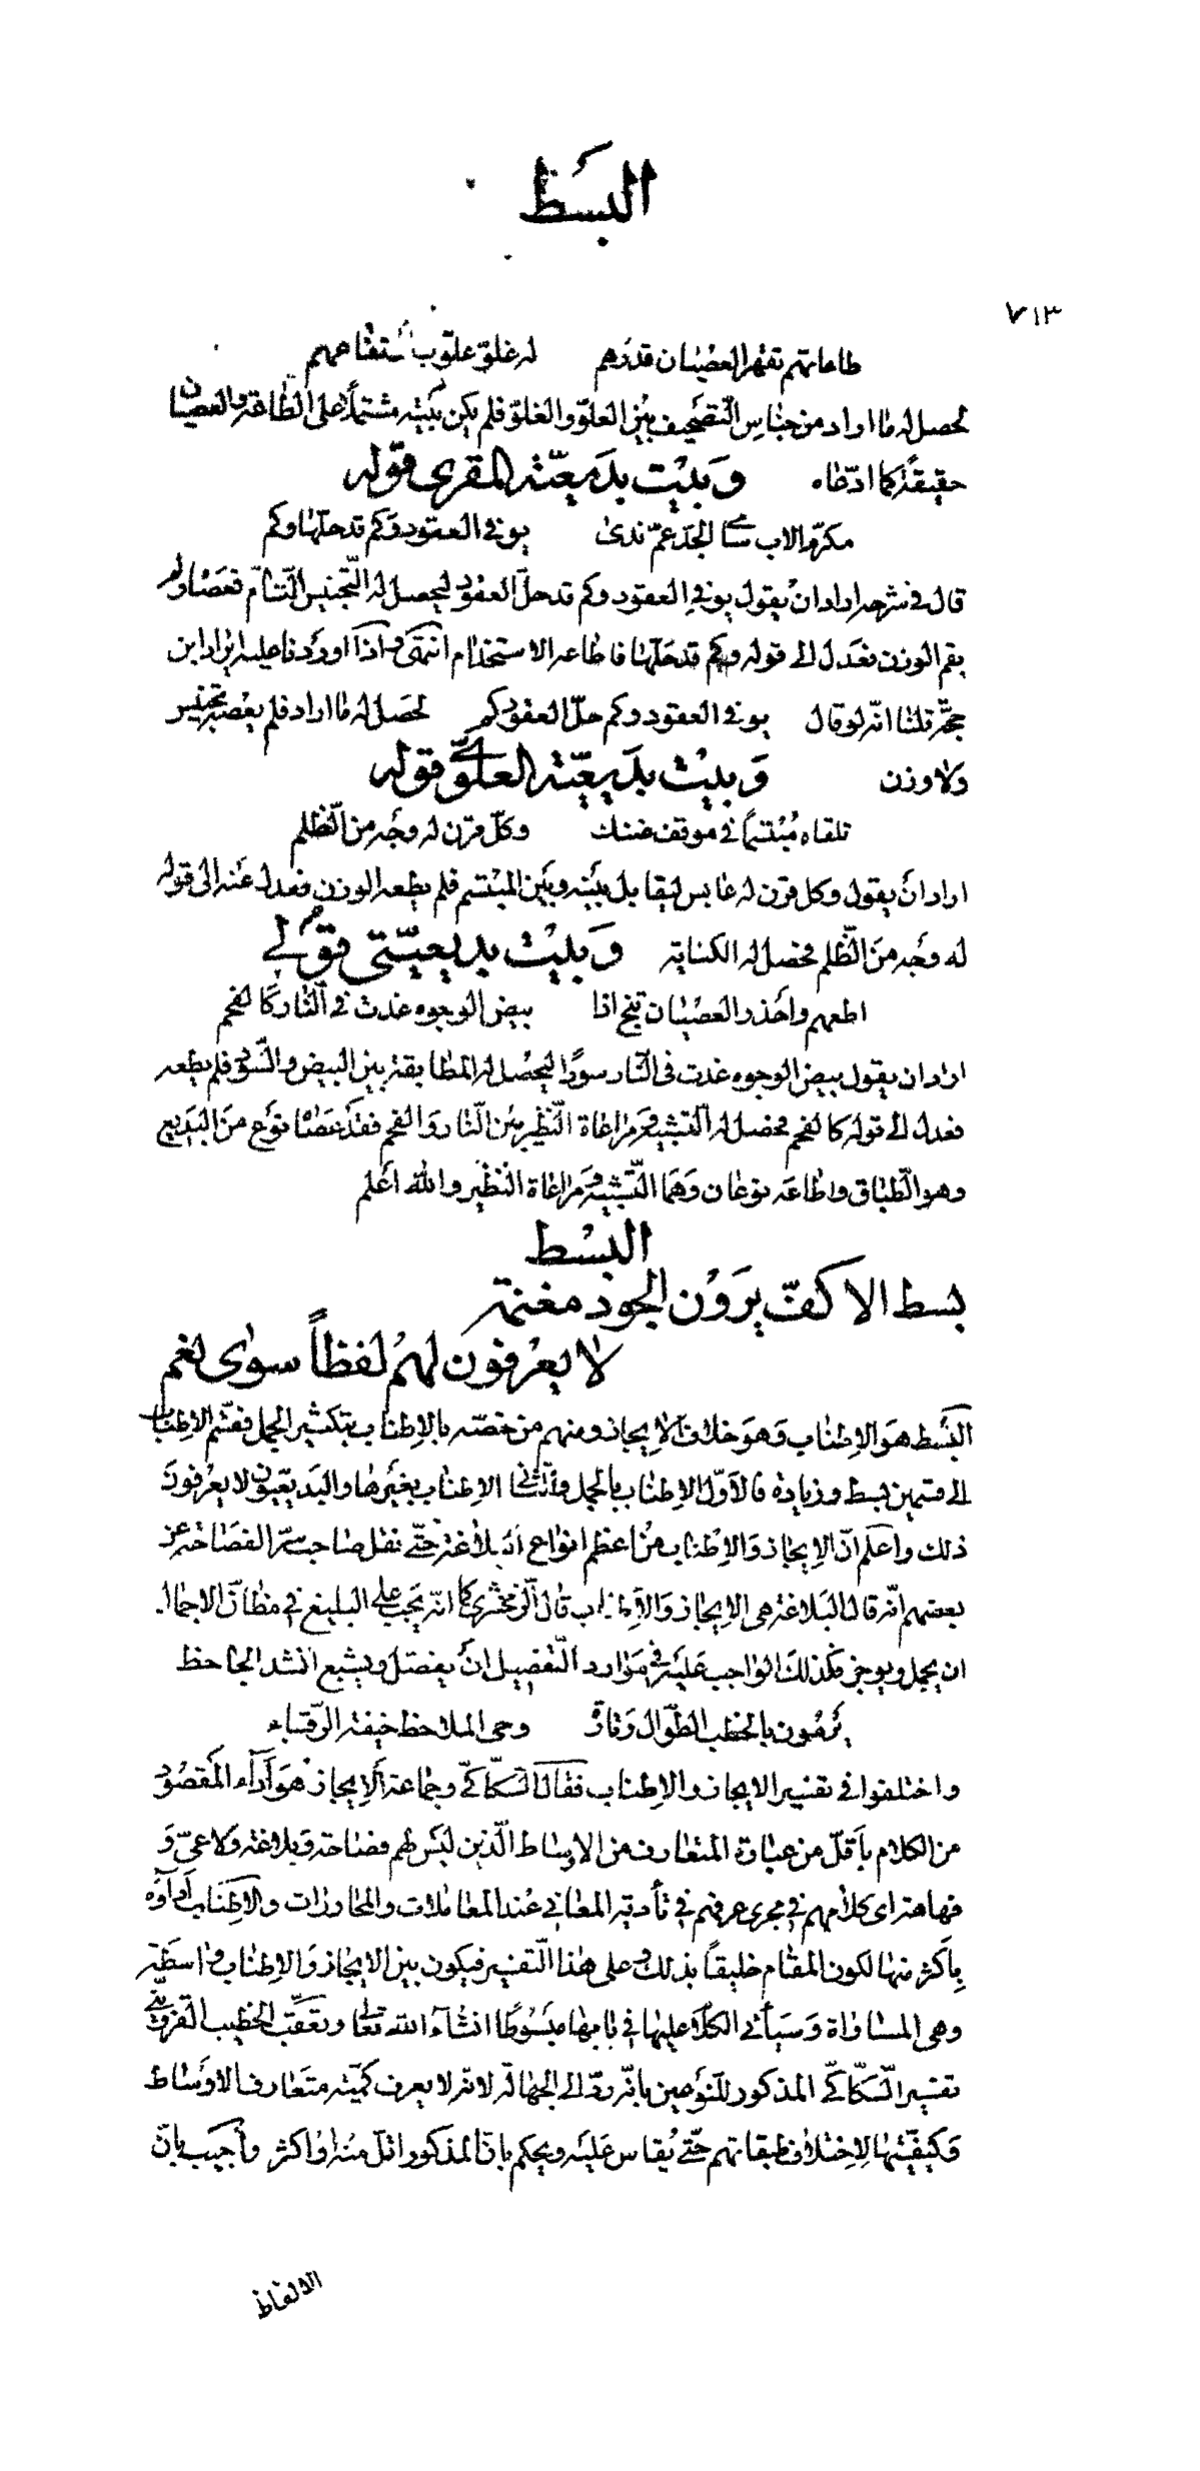 البسط
٧١٣
طاعاتهم تقهر العصيان قدرهم له غلوّ علوّ بأستقاعهم
لحصل له ما اراد من جناس التصحيف بين العلوّ والغلوّ فلم يكن بيته مشتملاً على الطاعة والعصيان
حقيقةً كما ادّعاه وبيت بديعيّة المقرى قوله
مكرّم الاب سامى الجدّ عمّ ندىً يوفى العقود وكم قد حلّها وكم
قال فى شرحه اراد ان يقول يوفى العقود وكم قد حلّ العقود ليحصل له التّجنيس التّامّ فعصاه ولم
يقم الوزن فعدل الى قوله وكم قد حلّها فاطاعه الاستخدام انتهى واذا اوردنا عليه ايراد ابن
حجّة قلنا انّه لو قال يوفى العقود وكم حلّ العقود كم لحصل له ما اراد فلم يعصه تجنيس
ولا وزن وبيت بديعيّة العلوىّ قوله
تلقاه مُبتسماً فى موقف ضنك وكلّ قرن له وجه من الظّلم
اراد أن يقول وكل قرن له عابس ليقابل بينه وبين المبتسم فلم يطعه الوزن فعدل عنه الى قوله
له وجه من الظّلم فحصل له الكناية وبيت بديعيّتى قولى
اطعهم واحذر العصيان تنج اذا بيض الوجوه غدت فى النّار كالفحم
اراد ان يقول بيض الوجوه غدت فى النّار سوداً ليحصل له المطابقة بين البيض والسّود فلم يطعه
فعدل الى قوله كالفحم فحصل له التّشبيه ومراعاة النّظير بين النّار والفحم فقد عصانا نوع من البديع
وهو الطّباق واطاعه نوعان وهما التّشبيه ومراعاة النظير والله أعلم
البسط
بسط الاكفّ يرون الجود مغنمة
لا يعرفون لهم لفظاً سوى نعم
البسط هو الاطناب وهو خلاف الايجاز ومنهم من خصّه بالاطناب بتكثير الجمل فقسّم الاطناب
الى قسمين بسط وزيادة فالاوّل الاطناب بالجمل والثّانى الاطناب بغيرها والبديعيّون لا يعرفون
ذلك واعلم انّ الايجاز والاطناب من اعظم انواع البلاغة حتّى نقل صاحب سرّ الفصاحة عن
بعضهم انّه قال البلاغة هى الايجاز والاطناب قال الزمخشرى كما انّه يجب على البليغ فى مظانّ الاجمال
ان يجمل ويوجز فكذلك الواجب عليه فى موارد التّفصيل ان يفصّل ويشبع انشد الجاحظ
يرمون بالخطب الطّوال وتارة وحى الملاحظ خيفة الرّقباء
واختلفوا فى تفسير الايجاز والاطناب فقال السّكّاكىّ وجماعة الايجاز هو أداء المقصود
من الكلام بأقلّ من عبارة المتعارف من الاوساط الّذين ليس لهم فصاحة وبلاغة ولا عىّ و
فهاهة اى كلامهم فى مجرى عرفهم فى تأدية المعانى عند المعاملات والمحاورات والاطناب أداؤه
بأكثر منها لكون المقام خليقاً بذلك وعلى هذا التفسير فيكون بين الايجاز والاطناب واسطة
وهى المساواة وسيأتى الكلام عليها فى بابها مبسوطاً انشاء الله تعالى وتعقّب الخطيب القزوينى
تفسير السّكّاكىّ المذكور للنّوعين بانّه ردّ الى الجهالة لانّه لا يعرف كميّة متعارف الاوساط
وكيفيّتها لاختلاف طبقاتهم حتّى يقاس عليه ويحكم بانّ المذكور اقل منه او اكثر وأجيب بانّ
الالفاظ